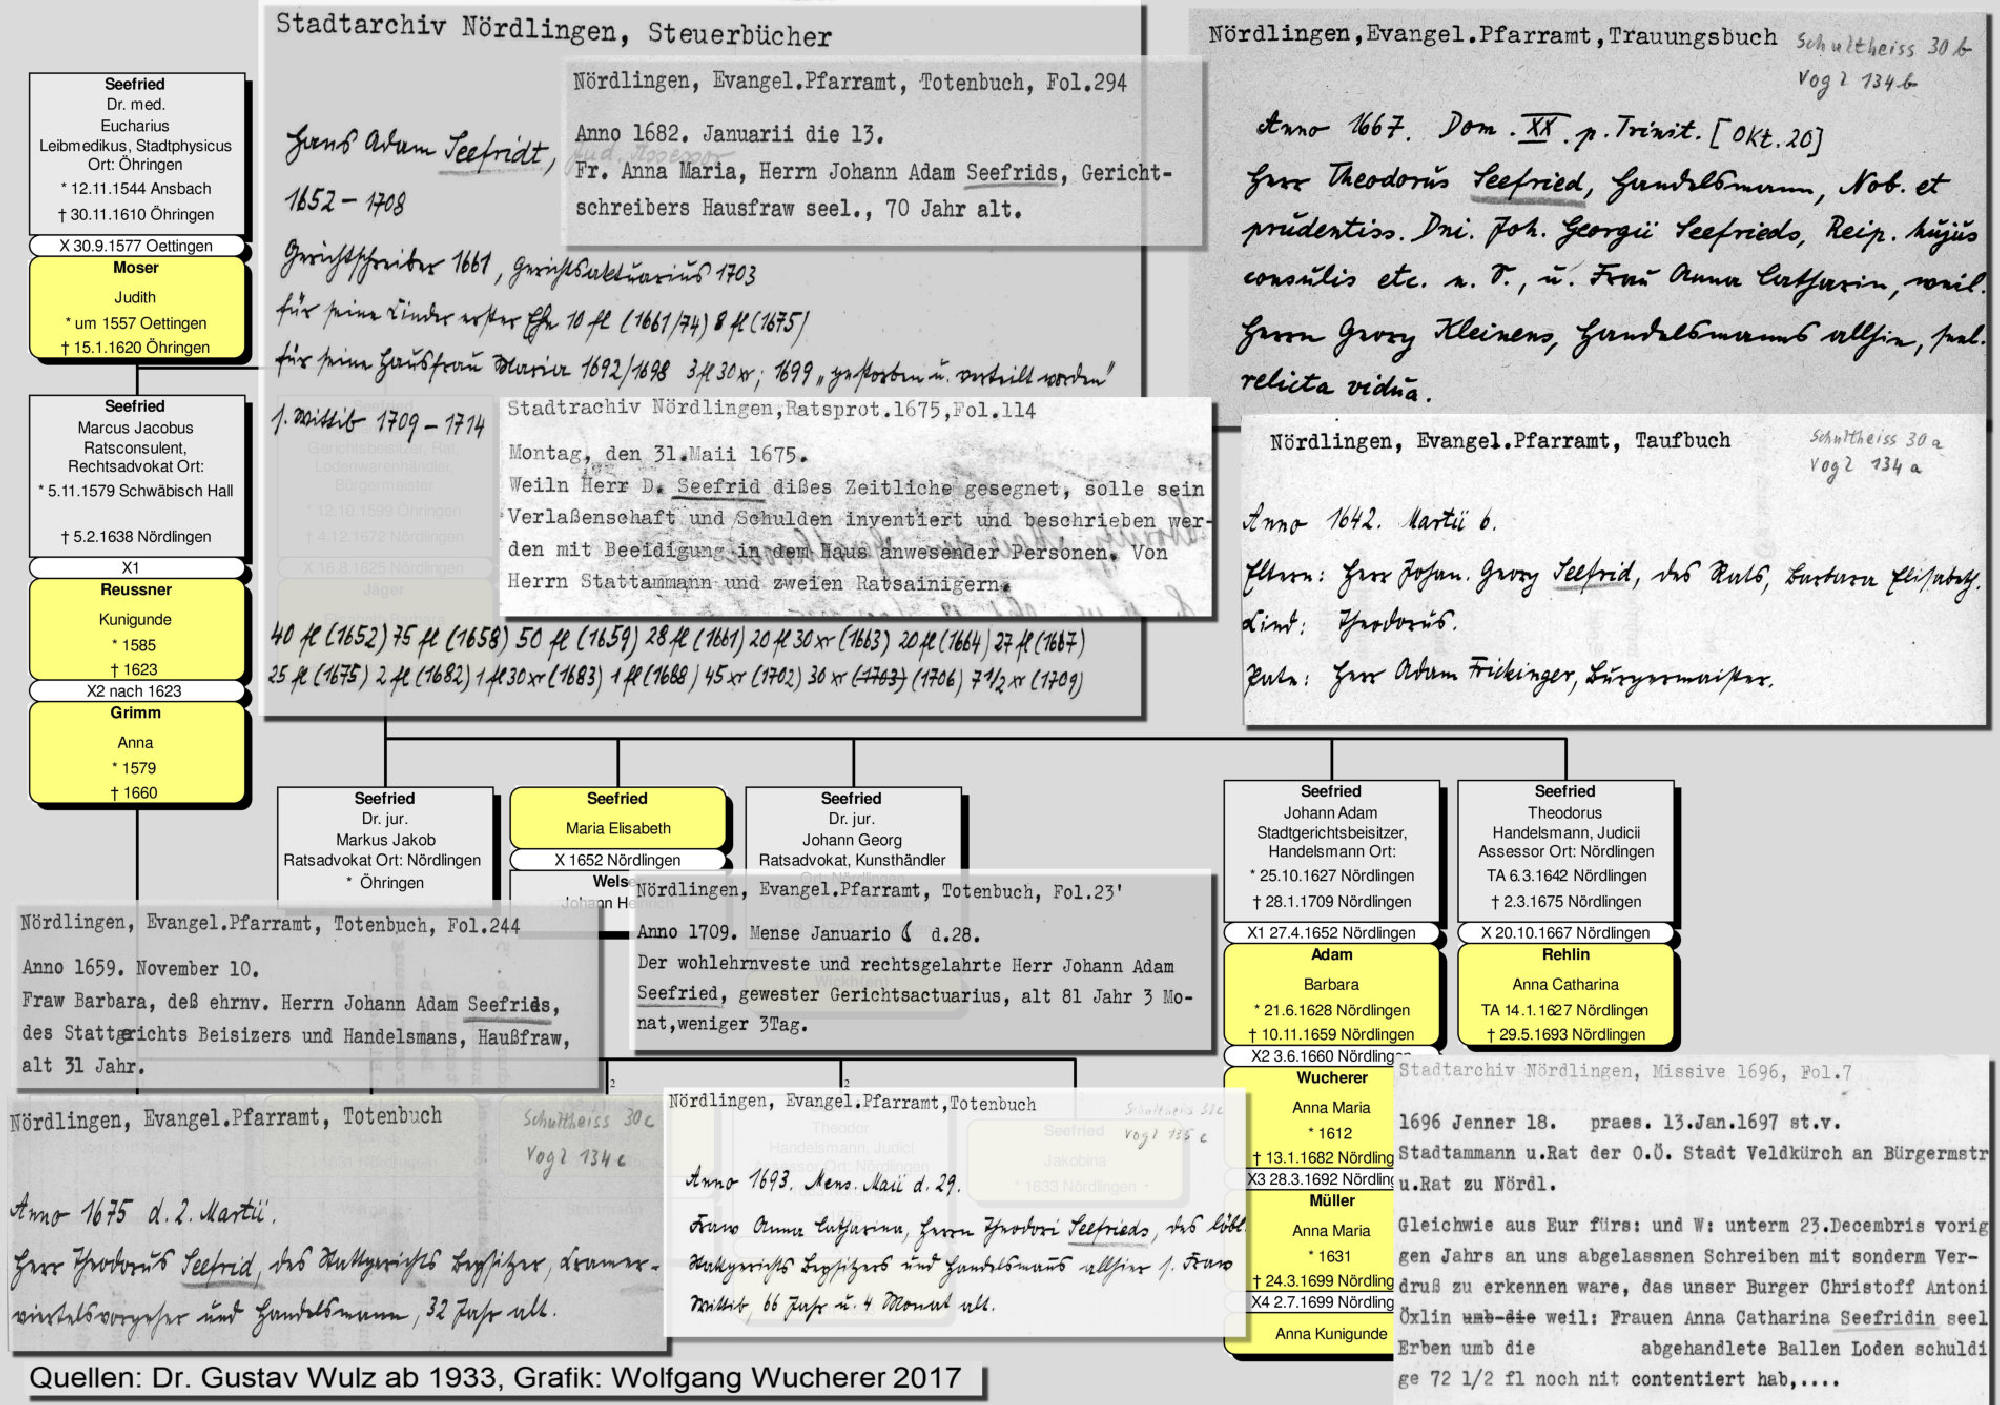 Seefried
Dr. med.
Eucharius
Leibmedikus, Stadtphysicus
Ort: Öhringen
* 12.11.1544 Ansbach
† 30.11.1610 Öhringen
X 30.9.1577 Oettingen
Moser
Judith
* um 1557 Oettingen
† 15.1.1620 Öhringen
Seefried
Marcus Jacobus
Ratsconsulent,
Rechtsadvokat Ort:
* 5.11.1579 Schwäbisch Hall
† 5.2.1638 Nördlingen
X1
Reussner
Kunigunde
* 1585
† 1623
X2 nach 1623
Grimm
Anna
* 1579
† 1660
Stadtarchiv Nördlingen, Steuerbücher
Hans Adam Seefridt,
1652 – 1708
Gerichtschreiber 1661, Gerichtsaktuarius 1703
für seine Kinder erster Ehe 10 fl (1661/74) 8 fl (1675)
für seine Hausfrau Maria 1692/1698 3 fl 30 xr; 1699 „gestorben u. verteilt worden"
s. Wittib 1709 – 1714
40 fl (1652) 75 fl (1658) 50 fl (1659) 28 fl (1661) 20 fl 30 xr (1663) 20 fl (1664) 27 fl (1667)
25 fl (1675) 2 fl (1682) 1 fl 30 xr (1683) 1 fl (1688) 45 xr (1702) 30 xr (1703) (1706) 7 1/2 xr (1709)
Nördlingen, Evangel.Pfarramt, Totenbuch, Fol.294
Anno 1682. Januarii die 13.
Jud. Assessor
Fr. Anna Maria, Herrn Johann Adam Seefrids, Gericht-
schreibers Hausfraw seel., 70 Jahr alt.
Gerichtsbeisitzer, Rat,
Lodenwarenhändler,
Bürgermeister
* 12.10.1599 Öhringen
† 4.12.1672 Nördlingen
X 16.8.1625 Nördlingen
Jäger
Stadtrachiv Nördlingen,Ratsprot.1675,Fol.114
Montag, den 31.Maii 1675.
Weiln Herr D. Seefrid dißes Zeitliche gesegnet, solle sein
Verlaßenschaft und Schulden inventiert und beschrieben wer-
den mit Beeidigung in dem Haus anwesender Personen. Von
Herrn Stattammann und zweien Ratsainigern.
Nördlingen,Evangel.Pfarramt,Trauungsbuch
Schultheiss 30 b
Vogl 134 b
Anno 1667. Dom. XX. p. Trinit. [Okt. 20]
Herr Theodorus Seefried, Handelsmann, Nob. et
prudentiss. Dni. Joh. Georgii Seefrieds, Reip. hujus
consulis etc. u. Frau Anna Catharin, weil.
Herrn Georg Kleinens, Handelsmanns allhie, seel.
relicta vidua.
Nördlingen, Evangel.Pfarramt, Taufbuch
Schultheiss 30 a
Vogl 134 a
Anno 1642. Martii 6.
Eltern: Herr Johan. Georg Seefrid, des Rats, Barbara Elisabeth.
Kind: Theodorus.
Pate: Herr Adam Frickinger, Burgermaister.
Seefried
Dr. jur.
Markus Jakob
Ratsadvokat Ort: Nördlingen
* Öhringen
Seefried
Maria Elisabeth
X 1652 Nördlingen
Welse
Johann Heinrich
Seefried
Dr. jur.
Johann Georg
Ratsadvokat, Kunsthändler
Seefried
Johann Adam
Stadtgerichtsbeisitzer,
Handelsmann Ort:
* 25.10.1627 Nördlingen
† 28.1.1709 Nördlingen
X1 27.4.1652 Nördlingen
Adam
Barbara
* 21.6.1628 Nördlingen
† 10.11.1659 Nördlingen
X2 3.6.1660 Nördlinge
Wucherer
Anna Maria
* 1612
† 13.1.1682 Nördling
X3 28.3.1692 Nördling
Müller
Anna Maria
* 1631
† 24.3.1699 Nördling
X4 2.7.1699 Nördling
Anna Kunigunde
Seefried
Theodorus
Handelsmann, Judicii
Assessor Ort: Nördlingen
TA 6.3.1642 Nördlingen
† 2.3.1675 Nördlingen
X 20.10.1667 Nördlingen
Rehlin
Anna Catharina
TA 14.1.1627 Nördlingen
† 29.5.1693 Nördlingen
Nördlingen, Evangel.Pfarramt, Totenbuch, Fol.244
Anno 1659. November 10.
Fraw Barbara, deß ehrnv. Herrn Johann Adam Seefrids,
des Stattgerichts Beisizers und Handelsmans, Haußfraw,
alt 31 Jahr.
Nördlingen, Evangel.Pfarramt, Totenbuch, Fol.23'
Anno 1709. Mense Januario d.28.
Der wohlehrnveste und rechtsgelahrte Herr Johann Adam
Seefried, gewester Gerichtsactuarius, alt 81 Jahr 3 Mo-
nat,weniger 3Tag.
2
2
Nördlingen, Evangel.Pfarramt, Totenbuch
Schultheiss 30 c
Vogl 134 c
Anno 1675 d. 2. Martii.
Herr Theodorus Seefrid, des Stattgerichts Beysitzer, Kramer-
viertelsvorgeher und Handelsmann, 32 Jahr alt.
Nördlingen, Evangel.Pfarramt,Totenbuch
Vogl 135 c
Anno 1693. Mens. Maii d. 29.
Fraw Anna Catharina, Herrn Theodori Seefrieds, des löbl.
Stattgerichts Beysitzers und Handelsmans allhier s. Fraw
Wittib, 66 Jahr u. 4 Monat alt.
Theodor
Handelsmann, Judici
Assessor Ort: Nördlingen
Seefried
Jakobina
* 1633 Nördlingen
Stadtarchiv Nördlingen, Missive 1696, Fol.7
1696 Jenner 18. praes. 13.Jan.1697 st.v.
Stadtammann u.Rat der O.Ö. Stadt Veldkürch an Bürgermstr
u.Rat zu Nördl.
Gleichwie aus Eur fürs: und W: unterm 23.Decembris vorig
gen Jahrs an uns abgelassnen Schreiben mit sonderm Ver-
druß zu erkennen ware, das unser Burger Christoff Antoni
Öxlin umb die weil: Frauen Anna Catharina Seefridin seel
Erben umb die abgehandlete Ballen Loden schuldi
ge 72 1/2 fl noch nit contentiert hab,....
Quellen: Dr. Gustav Wulz ab 1933, Grafik: Wolfgang Wucherer 2017